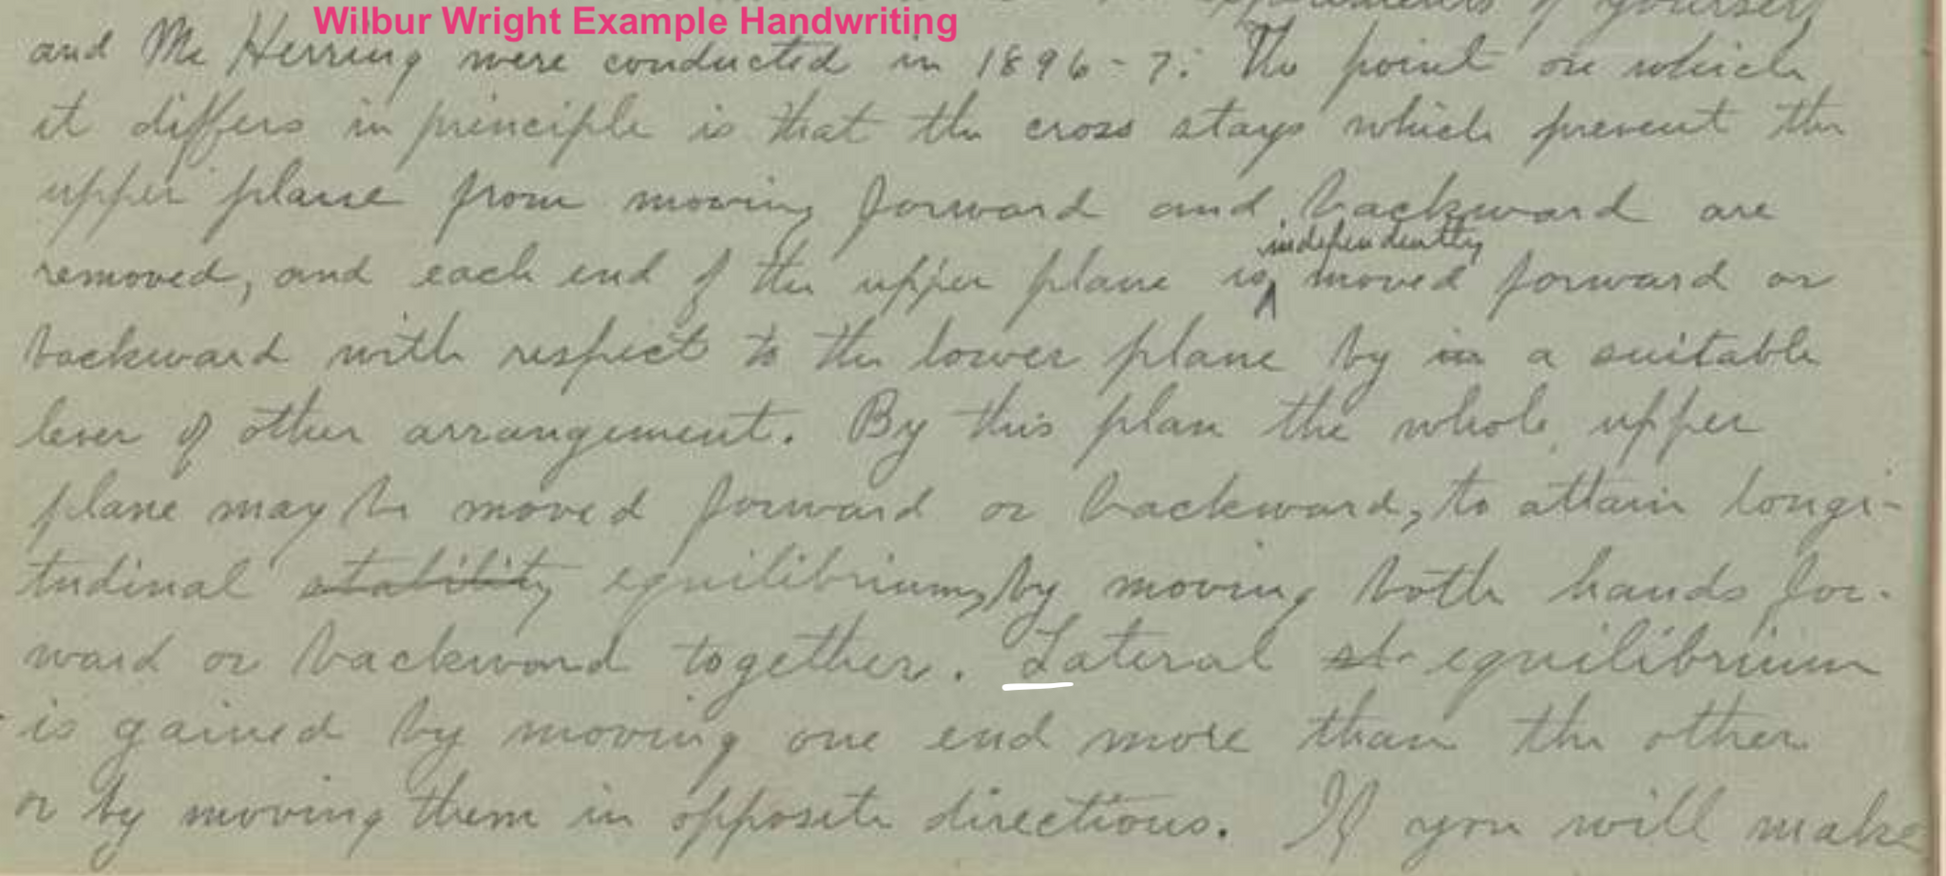 Wilbur Wright Example Handwriting
experiments of yourself
and Mr Herring were conducted in 1896-7. The point on which
it differs in principle is that the cross stays which prevent the
upper plane from moving forward and backward are
independently
removed, and each end of the upper plane is moved forward or
backward with respect to the lower plane by in a suitable
lever of other arrangement. By this plan the whole upper
plane may be moved forward or backward, to attain longi-
tudinal stability equilibrium, by moving both hands for-
ward or backward together. Lateral st- equilibrium
is gained by moving one end more than the other
or by moving them in opposite directions. If you will make